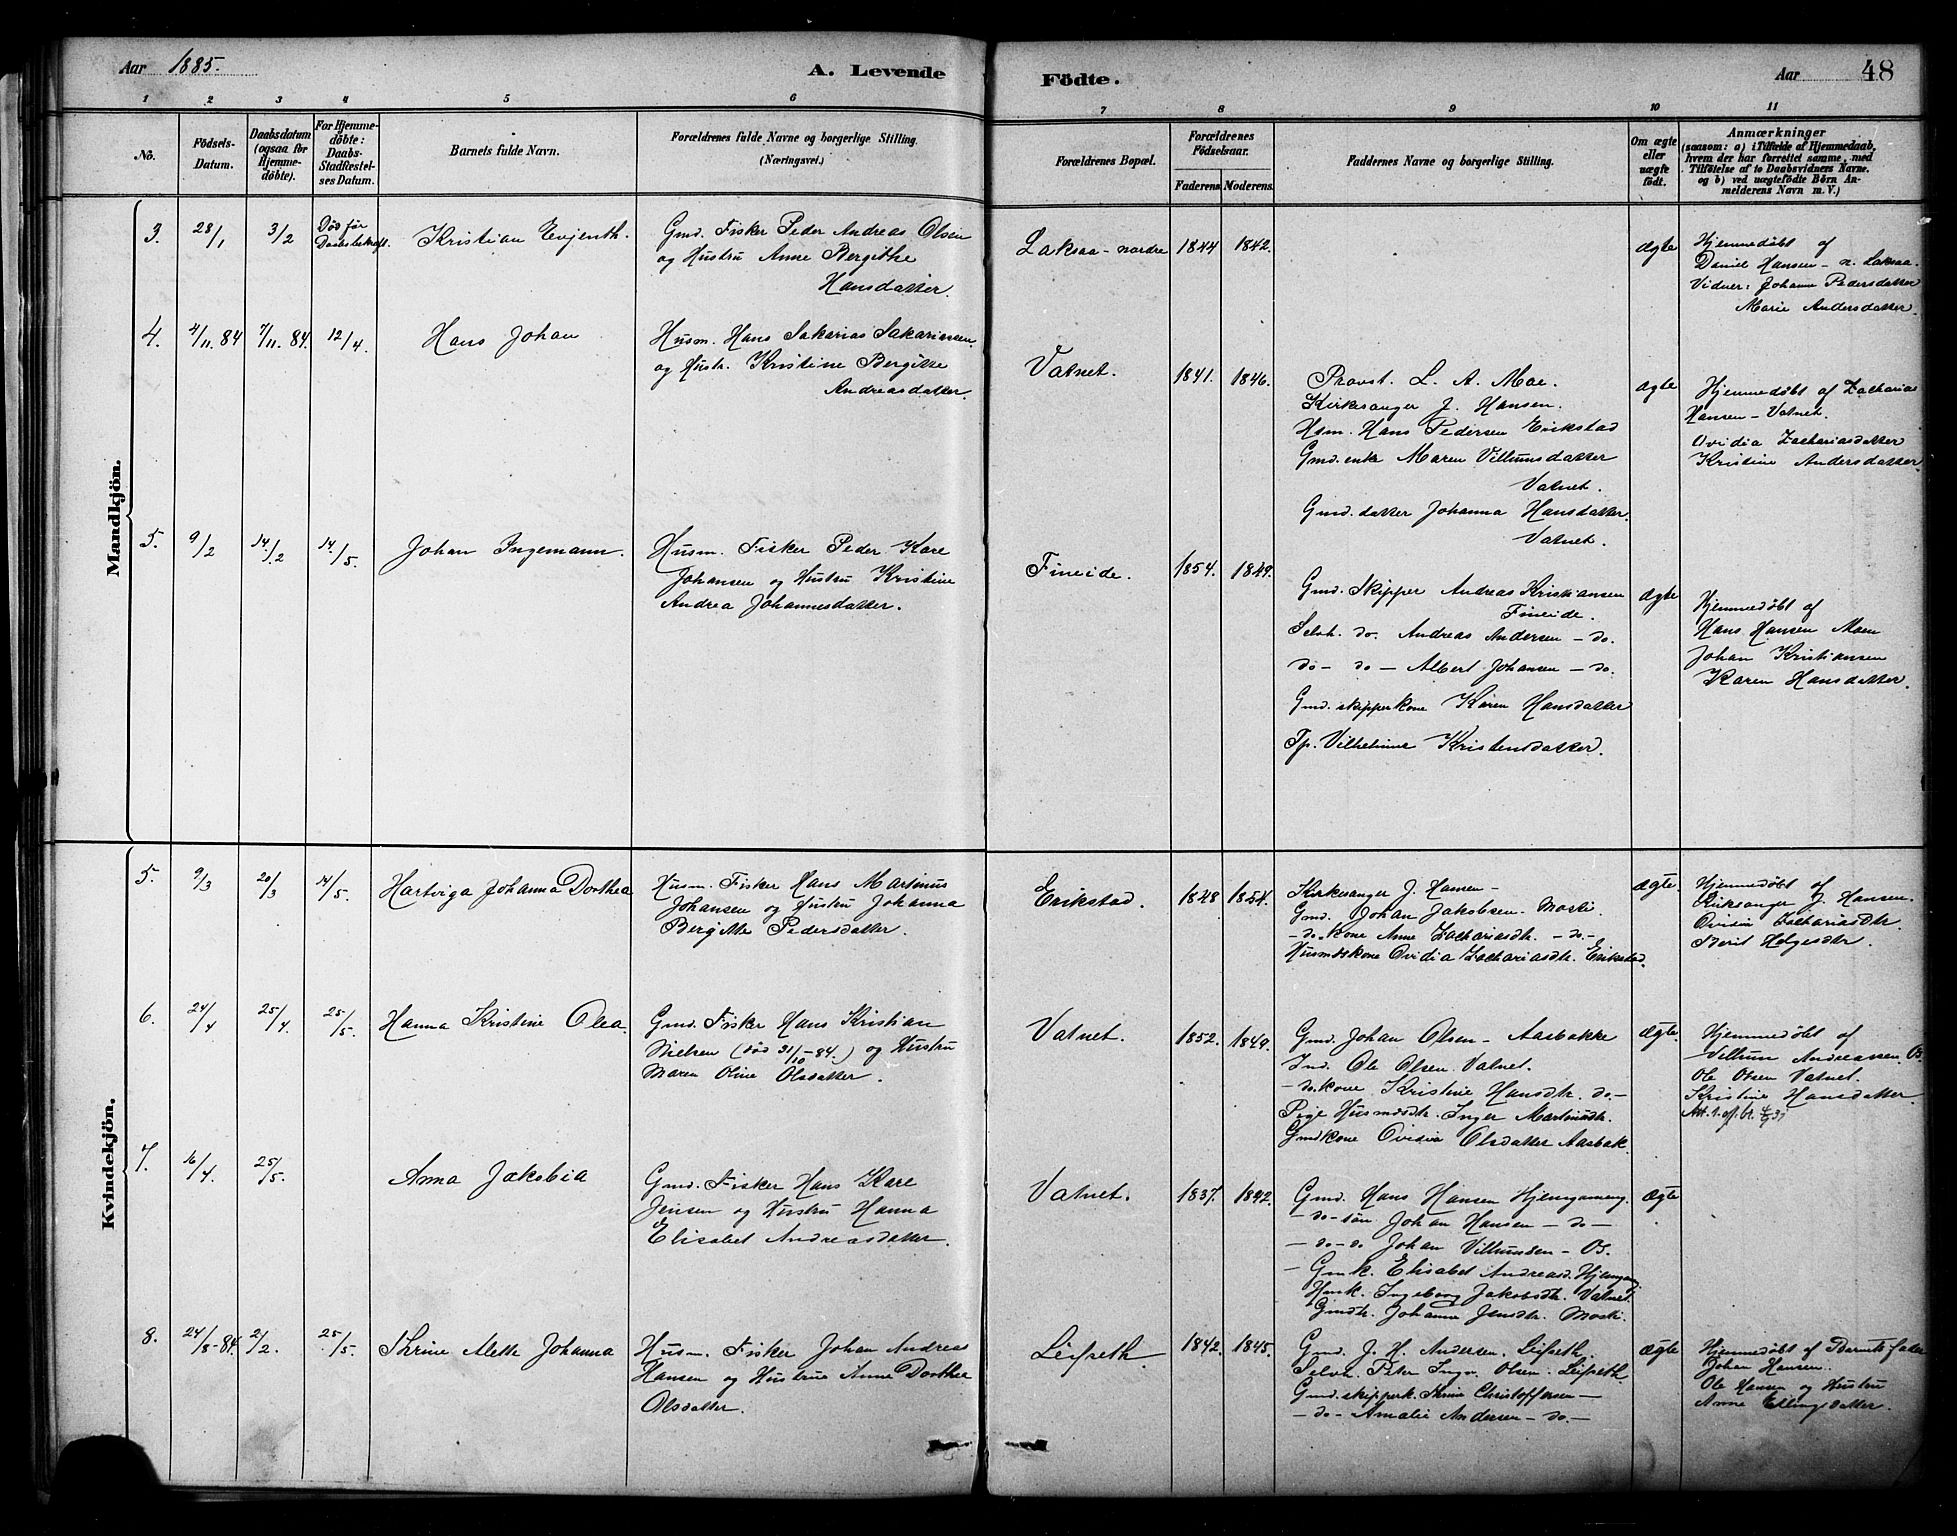 Aar 1885.
A. Levende
Födte.
Aar
48
1 2 3 4 5 6 7 8 9 10 11
No.
Födsels-Datum.
Daabsdatum (ogsaa for Hjemme-döbte).
For Hjemme-döbte: Daabs-Stadfæstelses Datum.
Barnets fulde Navn.
Forældrenes fulde Navne og borgerlige Stilling.
(Næringsvei.)
Forældrenes Bopæl.
Forældrenes Födselsaar.
Faderens Moderens.
Faddernes Navne og borgerlige Stilling.
Om ægte eller uægte födt.
Anmærkninger
(saasom: a) i Tilfælde af Hjemmedaab, hvem der har forrettet samme, med Tilföielse af to Daabsvidners Navne. og b) ved uægtefödte Börn Anmelderens Navn m. V.)
Mandkjön.
3. 28/1 3/2 Død før Daabsbekræft. Kristian Evjenth.
Gmd. Fisker Peder Andreas Olsen
og Hustru Anne Bergithe
Hansdatter.
Laksaa - nordre 1844 1842. ægte
Hjemmedøbt af
Daniel Hansen - n. Laksaa.
Vidner: Johanna Pedersdatter
Marie Andersdatter.
4. 4/11 84 7/11. 84. 12/4. Hans Johan
Husm. Hans Sakarias Sakariassen
og Hustr. Kristine Bergitte
Andreasdatter.
Vatnet. 1841. 1846.
Provst. L. A. Moe.
Kirkesanger J. Hansen.
Hsm. Hans Pedersen Erikstad
Gmd. enke Maren Villumsdatter
Vatnet.
Gmd. datter Johanna Hansdatter.
Vatnet.
ægte
Hjemmedøbt af Zacharias
Hansen - Vatnet.
Ovidia Zachariasdatter
Kristine Andersdatter.
5. 9/2 14/2 14/5. Johan Ingemann.
Husm. Fisker Peder Kare
Johansen og Hustru Kristine
Andrea Johannesdatter.
Fineide. 1854. 1849.
Gmd. Skipper Andreas Kristiansen
Fineide.
Selvh. do. Andreas Andersen - do.
do - do - Albert Johansen - do.
Gmd. skipperkone Karen Hansdatter
Tp. Vilhelmine Kristensdatter.
ægte
Hjemmedøbt af
Hans Hansen Moen
Johan Kristiansen
Karen Hansdatter.
Kvindekjön.
5. 9/3 20/3 14/5. Hartviga Johanna Dorthea
Husm. Fisker Hans Martinus
Johansen og Hustru Johanna
Bergitte Pedersdatter.
Erikstad. 1848 1854.
Kirkesanger J. Hansen -
Gmd. Johan Jakobsen. Moski.
- do. kone Anne Zachariasdtr. - do -
Husmdskone Ovidia Zachariasdtr. Erikstad.
ægte
Hjemmedøbt af
Kirksanger J. Hansen.
Ovidia Zachariasdtr.
Berit Helgesdtr.
6. 24/4 25/4. 25/5. Hanna Kristine Olea.
Gmd. Fisker Hans Kristian
Nielsen (død 31/10-84.) og Hustru
Maren Oline Olsdatter.
Vatnet. 1852. 1849.
Gmd. Johan Olsen - Aasbakke
Ind. Ole Olsen. Vatnet.
- do. kone Kristine Hansdtr. do -
Pige Husmdsdtr. Inger Martinsdtr.
Gmdkone Ovidia Olsdatter Aasbak.
Ægte.
Hjemmedøbt af
Villum Andreassen. Os.
Ole Olsen Vatnet.
Kristine Hansdatter.
7. 16/4. 25/5. Anna Jakobia
Gmd. Fisker Hans Kare
Jensen og Hustru Hanna
Elisabet Andreasdatter.
Vatnet. 1837. 1842.
Gmd. Hans Hansen Hjemgam
- do - søn Johan Hansen - do -
- do - do Johan Villumsen - Os.
- Gmk. Elisabet Andreasd.
Hmk. Ingeborg Jakobsdtr. Vatnet.
Gmdtr. Johanne Jensdtr. Moski.
Ægte
8. 24/8-84. 2/2. 25/5. Thrine Alette Johanna
Husm. Fisker Johan Andreas
Hansen og Hustrue Anne Dorthea
Olsdatter.
Leifseth. 1842. 1845.
Gmd. J. H. Andersen. Leifseth.
Selvh. Peter Ingv. Olsen. Leifseth.
Gmd. skipperk. Thrine Christoffersen -
- do - Amalie Andersen - do -
Ægte
Hjemmedøbt af Barnets fader
Johan Hansen.
Ole Hansen og Hustru
Anne Ellingsdatter.